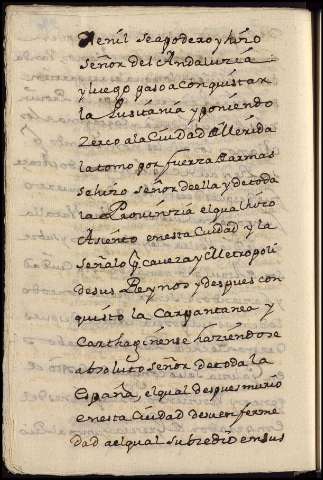 Henil Seapodero y hizo
Señor del Andaluzia
y luego paso a conquistar
la Lusitania y poniendo
Zerco ala Ciudad d Merida
la tomo por fuerza darmas
se hizo Señor de ella y de toda
la Provinzia el qual hizo
Asiento en esta Ciudad y la
Señalo q caveza y Metropoli
de sus Reynos y despues con
quisto la Carpantanea y
Carthaginense haziendose
absoluto Señor de toda la
España, el qual despues murio
en esta Ciudad de su enferme
dad a el qual Subzedio en sus